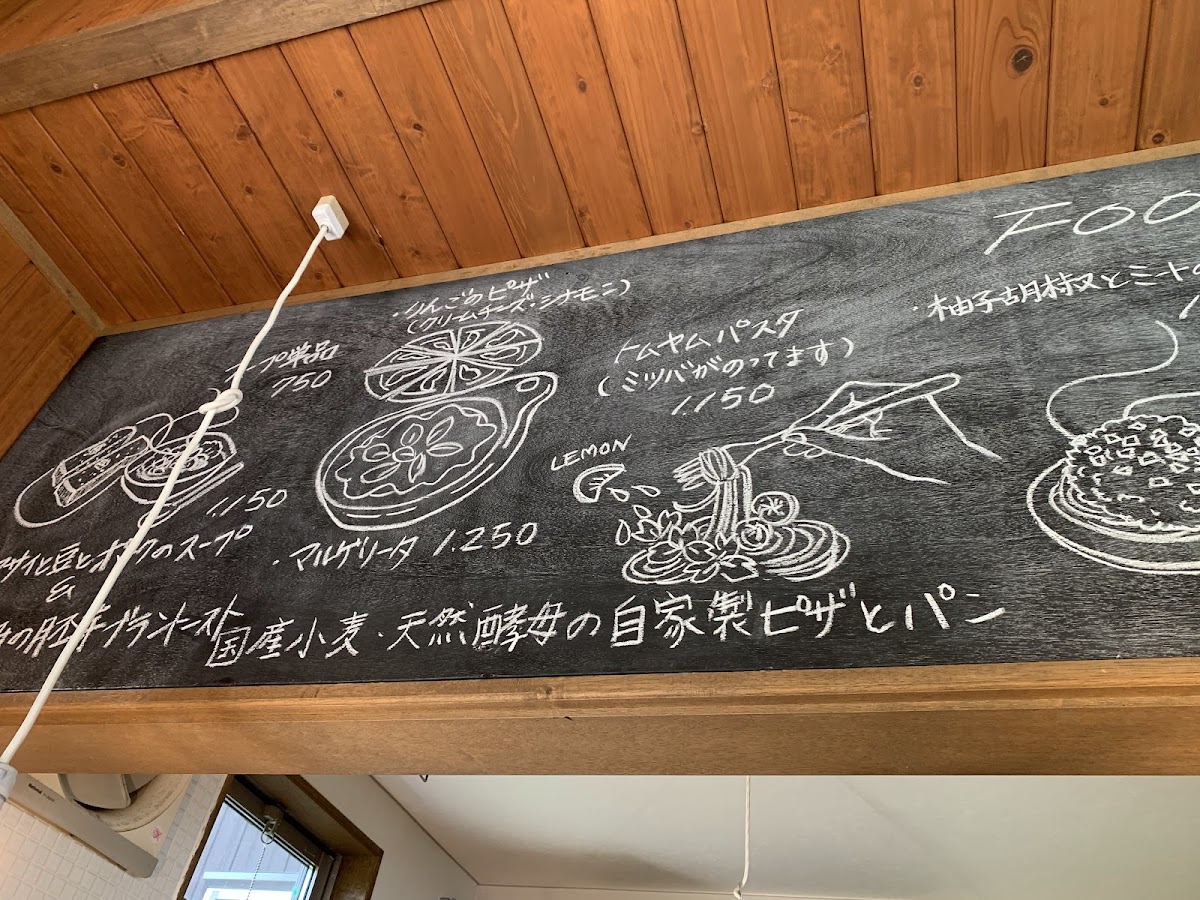 FOO
・りんごのピザ
(クリームチーズ・シナモン)
・柚子胡椒とミートの
プ単品
750
トムヤムパスタ
(ミツバがのってます)
1.150
LEMON
1.150
・マルゲリータ 1.250
サイと豆とオクのスープ
&
の胚芽グラントースト
国産小麦・天然酵母の自家製ピザとパン